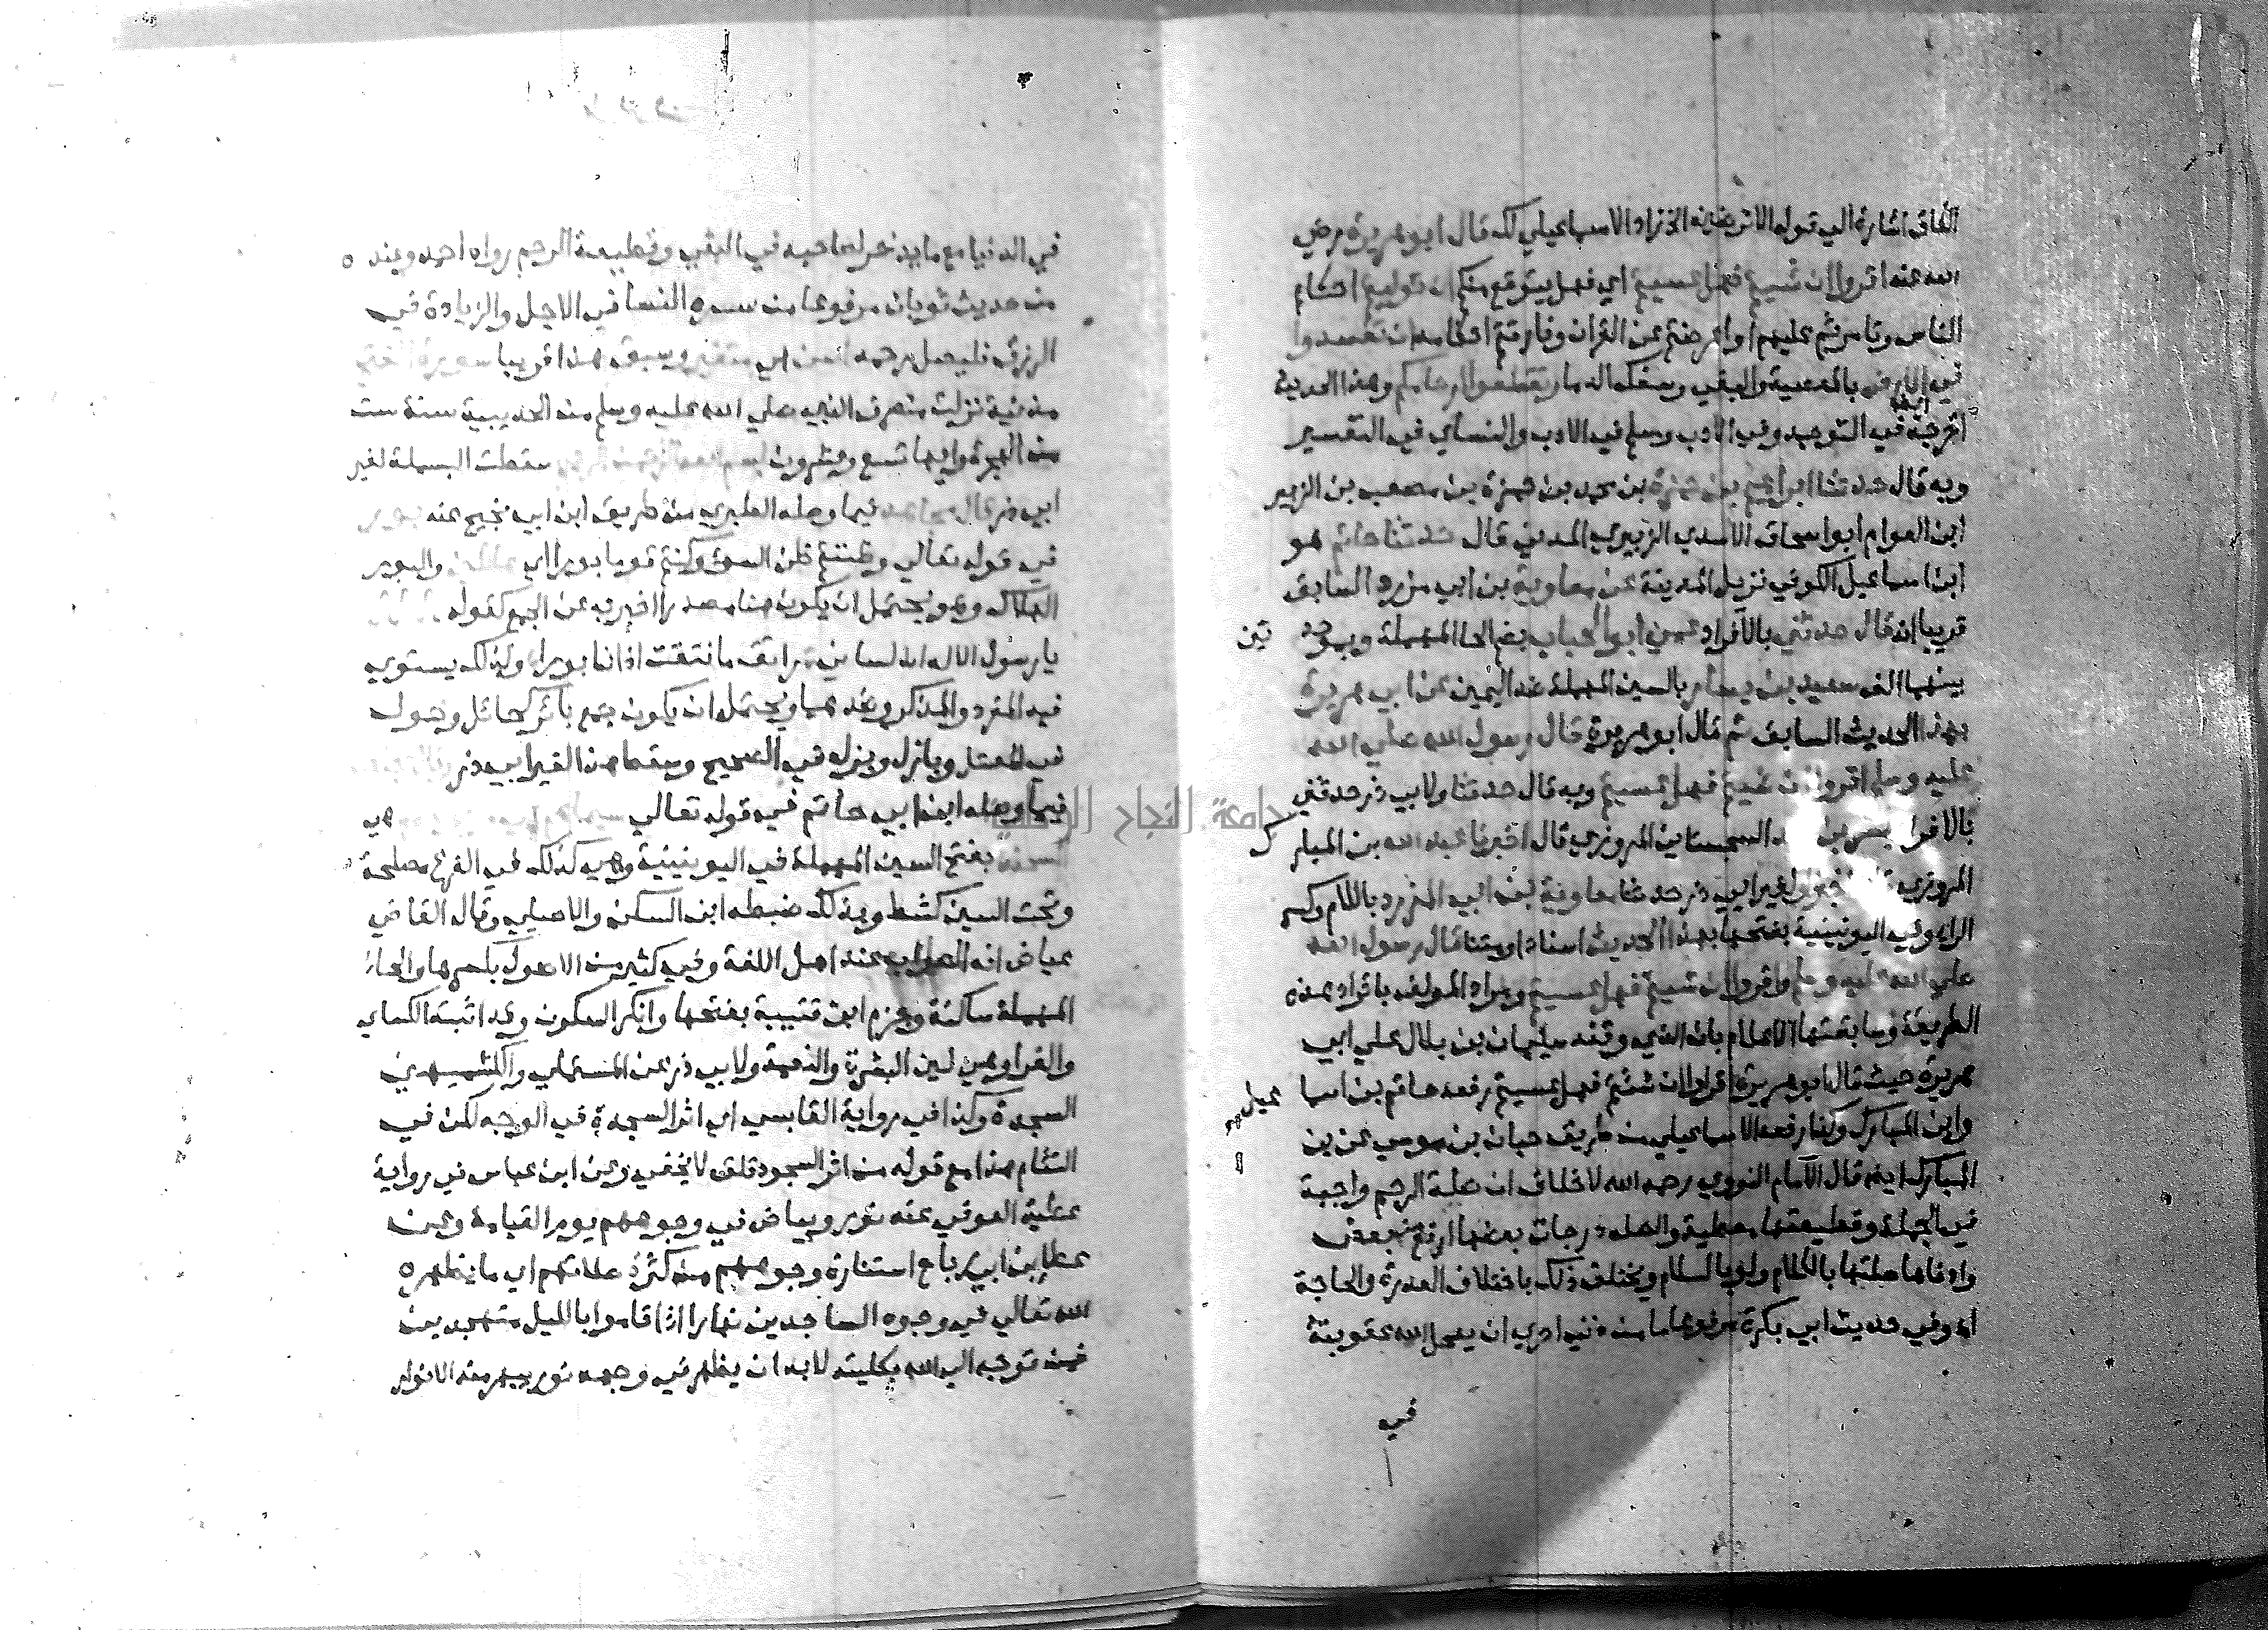 الفاق اشارة الي قوله الا ترضين زاد الاسماعيلي لك قال ابو هريرة رضي
الله عنه اقروا ان شيتم فهل عسيتم اي فهل يتوقع منكم ان توليتم احكام
الناس وتامرتم عليهم او اعرضتم عن القران وفارقتم احكامه ان تفسدوا
في الارض بالمعصية والبغي وسفك الدما وتقطعوا ارحامكم وهذا الحديث
اخرجه ايضا في التوحيد وفي الادب ومسلم في الادب والنساي في التفسير
وبه قال حدثنا ابراهيم بن حمزة بن محمد بن حمزة بن مصعب بن الزبير
ابن العوام ابو اسحاق الاسدي الزبيري المدني قال حدثنا حاتم هو
ابن اسماعيل الكوفي نزيل المدينة عن معاوية بن ابي مزرد السابق
قريبا انه قال حدثني بالافراد عمي ابو الحباب بضم الحا المهملة وبموحدتين
بينهما الف سعيد بن يسار بالسين المهملة ضد اليمين عن ابي هريرة
بهذا الحديث السابق ثم قال ابو هريرة قال رسول الله صلي الله
عليه وسلم اقروا ان شيتم فهل عسيتم وبه قال حدثنا ولابي ذر حدثني
بالافراد بشر بن السجستاني المروزي قال اخبرنا عبد الله بن المبارك
المروزي قال اخبرنا ولغير ابي ذر حدثنا معاوية بن ابي المزرد باللام وكسر
الراء وفي اليونينية بفتحها بهذا الحديث اسنادا ومتنا قال رسول الله
صلي الله عليه وسلم واقروا ان شيتم فهل عسيتم ومراد المولف بايراد هذه
الطريقة وسابقتها الاعلام بان الذي وقفه سليمان بن بلال علي ابي
هريرة حيث قال ابو هريرة اقروا ان شئتم فهل عسيتم رفعه حاتم بن اسماعيل
وابن المبارك وكذا رفعه الاسماعيلي من طريق حبان بن موسي عن بن
المبارك ايضا قال الامام النووي رحمه الله لا خلاف ان صلة الرحم واجبة
في الجملة وقطيعتها معصية والصلة درجات بعضها ارفع من بعض
وادناها صلتها بالكلام ولو بالسلام ويختلف ذلك باختلاف القدرة والحاجة
اه وفي حديث ابي بكرة مرفوعا ما من ذنب احري ان يعجل الله عقوبته
في
في الدنيا مع ما يدخر لصاحبه في البغي وقطيعة الرحم رواه احمد وعنده
من حديث ثوبان مرفوعا من سره النسا في الاجل والزيادة في
الرزق فليصل رحمه وسبق هذا قريبا
مدنية نزلت منصرف النبي صلي الله عليه وسلم من الحديبية سنة ست
من الهجرة وايها تسع وعشرون سقطت البسملة لغير
ابي ذر قال مجاهد فيما وصله الطبري من طريق ابن ابي نجيح عنه
في قوله تعالي وظننتم ظن السوء وكنتم قوما بورا اي والبور
الهلاك وهو يحتمل ان يكون هنا مصدرا اخبر به عن الجمع كقوله
يا رسول الاله ان لساني راتق ما فتقت اذ انا بور ولذلك يستوي
فيه المفرد والمذكر وضدهما ويحتمل ان يكون جمع بائر كحائل وحول
في المعتل وبازل وبزل في الصحيح وسقط هذا لغير ابي ذر
فيما وصله ابن ابي حاتم في قوله تعالي هي
السحنة بفتح السين المهملة في اليونينية وهي كذلك في الفرع مصلحة
وتحت السين كشط وبذلك ضبطه ابن السكن والاصيلي وقال القاضي
عياض انه الصواب عند اهل اللغة وفي كثير من الاصول بكسرها والحا
المهملة ساكنة وجزم ابن قتيبة بفتحها وانكر السكون وقد اثبته الكساي
والفرا وهي لين البشرة والنعمة ولابي ذر عن المستملي والكشميهني
السجدة وكذا في رواية القابسي اي اثر السجدة في الوجه لكن في
التئام هذا مع قوله من اثر السجود قلق لا يخفي وعن ابن عباس في رواية
عطية العوفي عنه نور وبياض في وجوههم يوم القيامة وعن
عطا بن ابي رباح استنارة وجوههم من كثرة صلاتهم اي ما يظهره
الله تعالي في وجوه الساجدين نهارا اذا قاموا بالليل متهجدين
فمن توجه الي الله بكليته لابد ان يظهر في وجهه نور يبهر منه الانوار
جامعة النجاح الوطنية